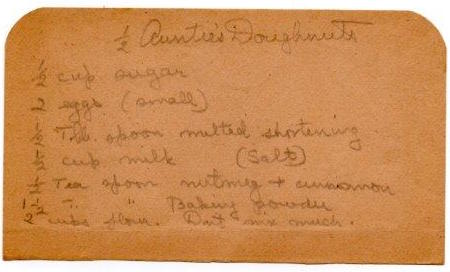 ½ Auntie's Doughnuts
cup sugar
2 eggs (small)
Tbl. spoon melted shortening
cup milk (Salt)
Tea spoon nutmeg + cinnamon
T. " Baking powder
cups flour. Dont mix much.